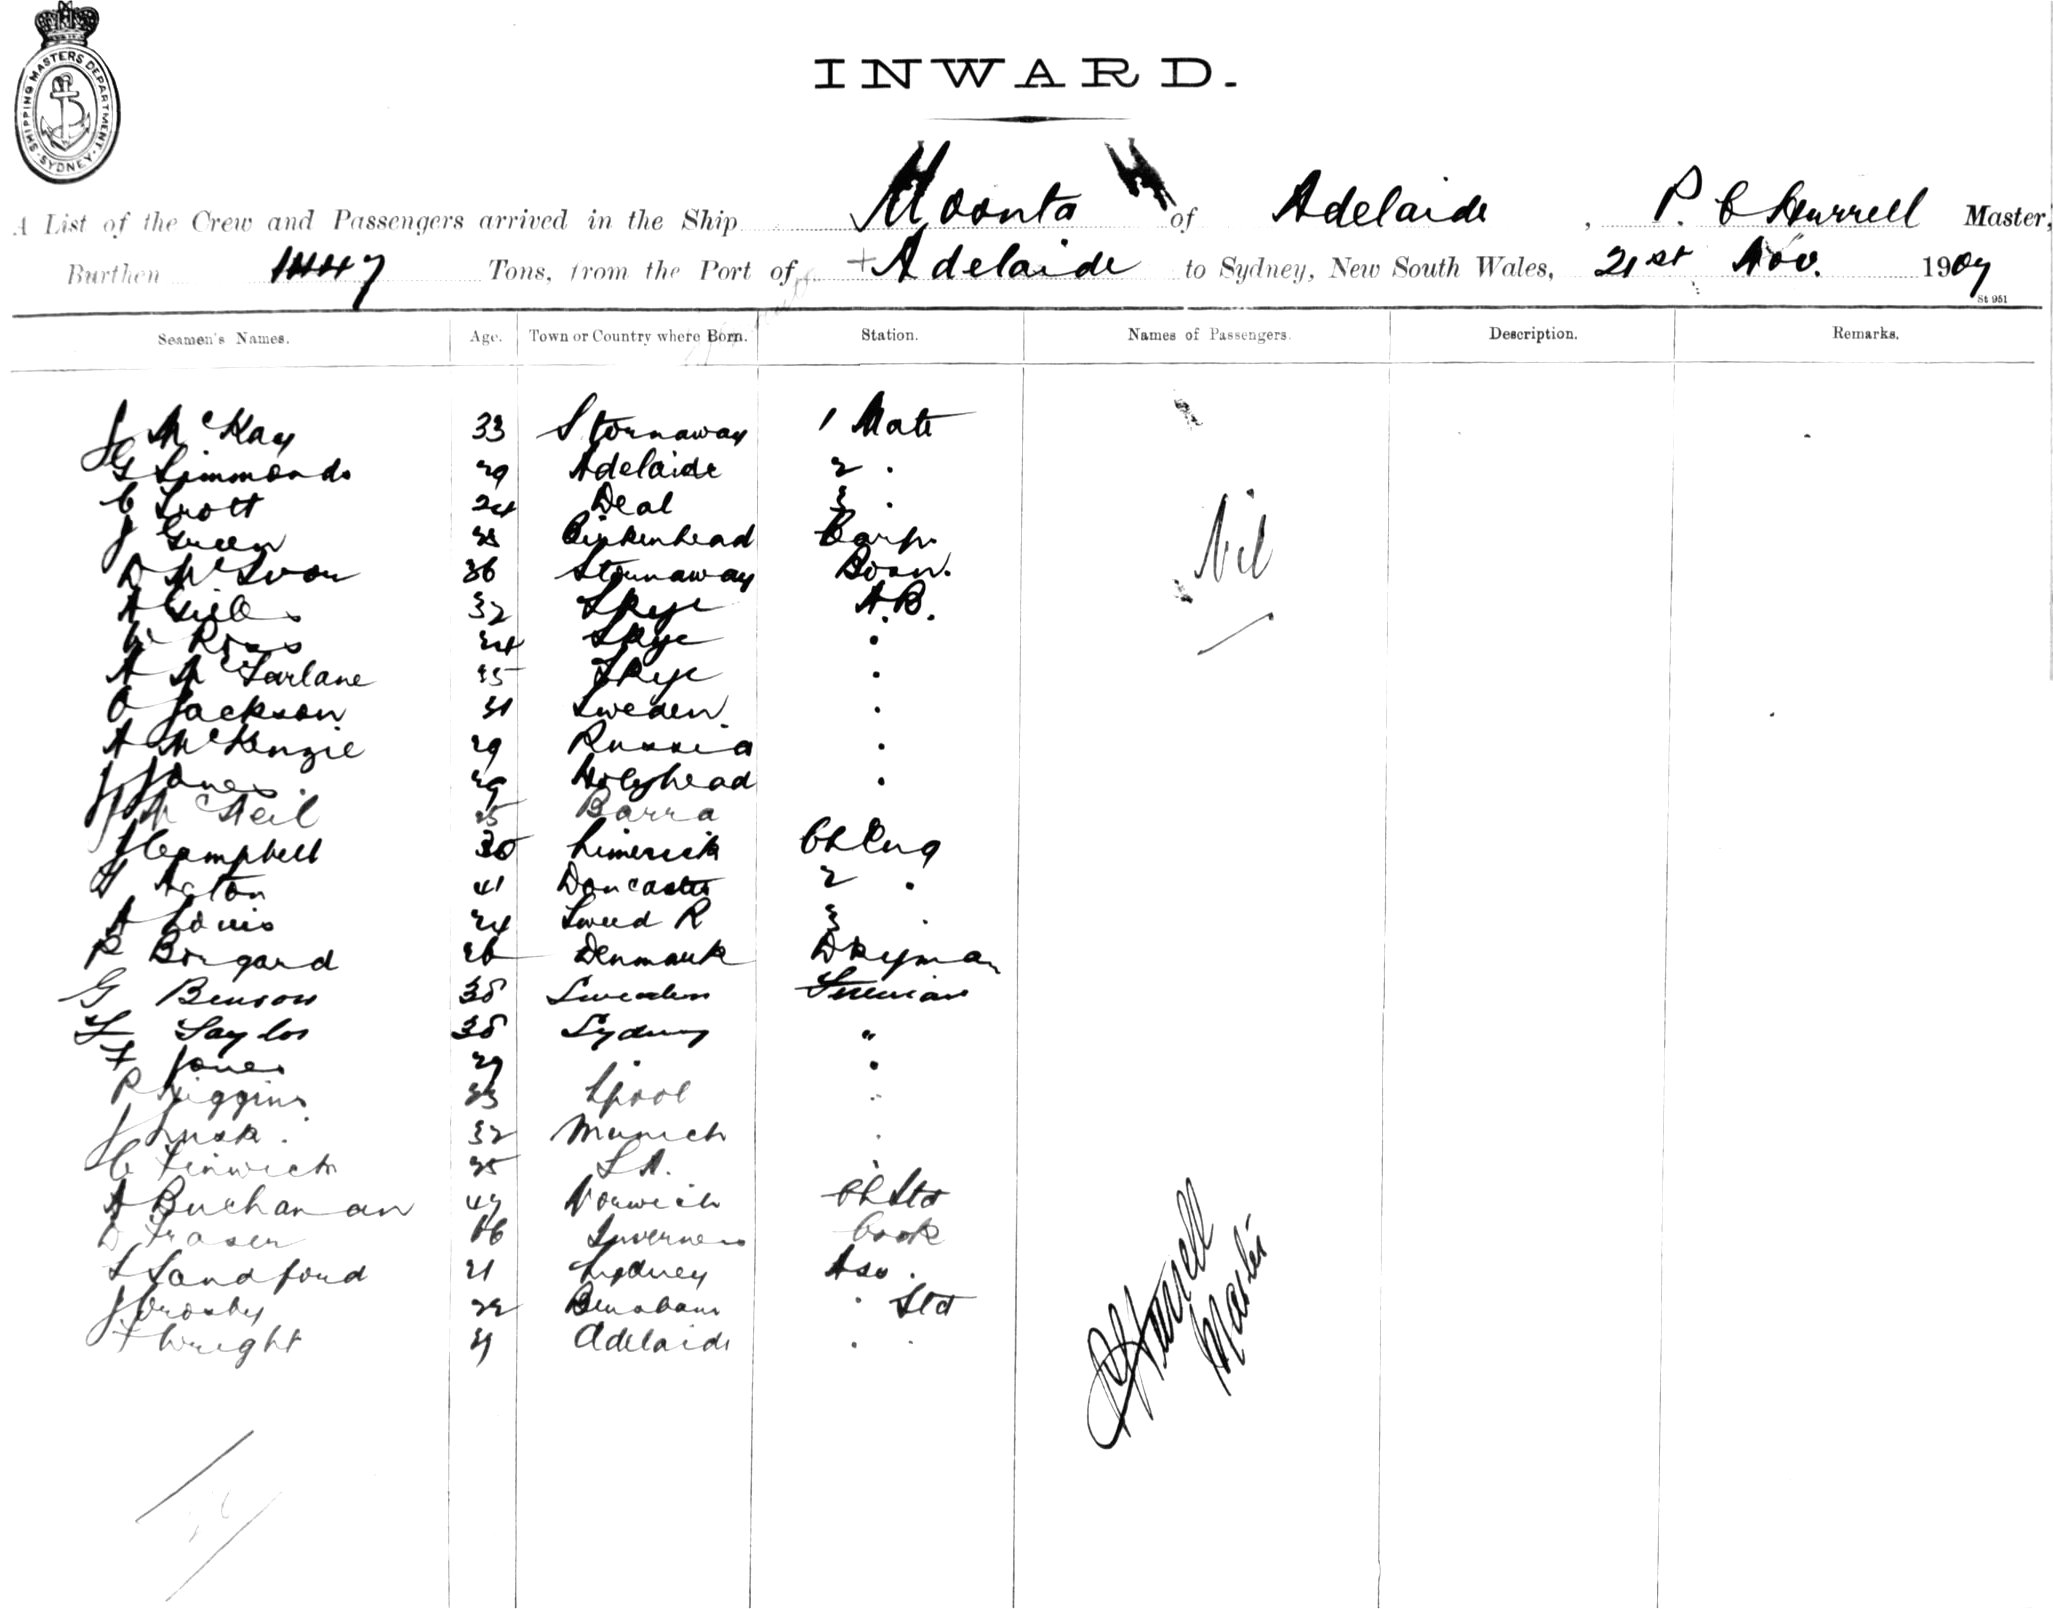 SHIPPING MASTERS DEPARTMENT. SYDNEY
INWARD.
A List of the Crew and Passengers arrived in the Ship Moonta of Adelaide, P. C Hurrell Master,
Burthen Tons, from the Port of Adelaide to Sydney, New South Wales, 21st Nov. 1907
St 951
Seamen's Names. Age. Town or Country where Born. Station. Names of Passengers. Description. Remarks.
J McKay 33 Stornaway 1 Mate
G Simmonds 29 Adelaide 2 "
C Trott 24 Deal 3 "
J Green Birkenhead Carp.
D McIvor 36 Stornaway Bosn.
A Gillies 32 Skye A.B.
W Ross 24 Skye "
A McFarlane 35 Skye "
O Jackson 31 Sweden "
A McKenzie 29 Russia "
J Jones 29 Holyhead "
McNeil 25 Barra
J Campbell Limerick Ch Eng
Acton 41 Doncaster 2 "
A Louis 24 Tweed R 3 "
P Borgard 26 Denmark Dkyman
G Benson 38 Sweden Fireman
Taylor 38 Sydney "
F Jones 29 "
P Higgins 23 Lpool "
J Lusk. 32 Munich "
C Finwick 35 S A. "
A Buchanan 47 Norwich Ch Std
D Fraser Inverness Cook
S Sandford 21 Sydney Ass.
J Crosby 22 " Std
F Wright 21 Adelaide " "
Nil
P C Hurrell
Master